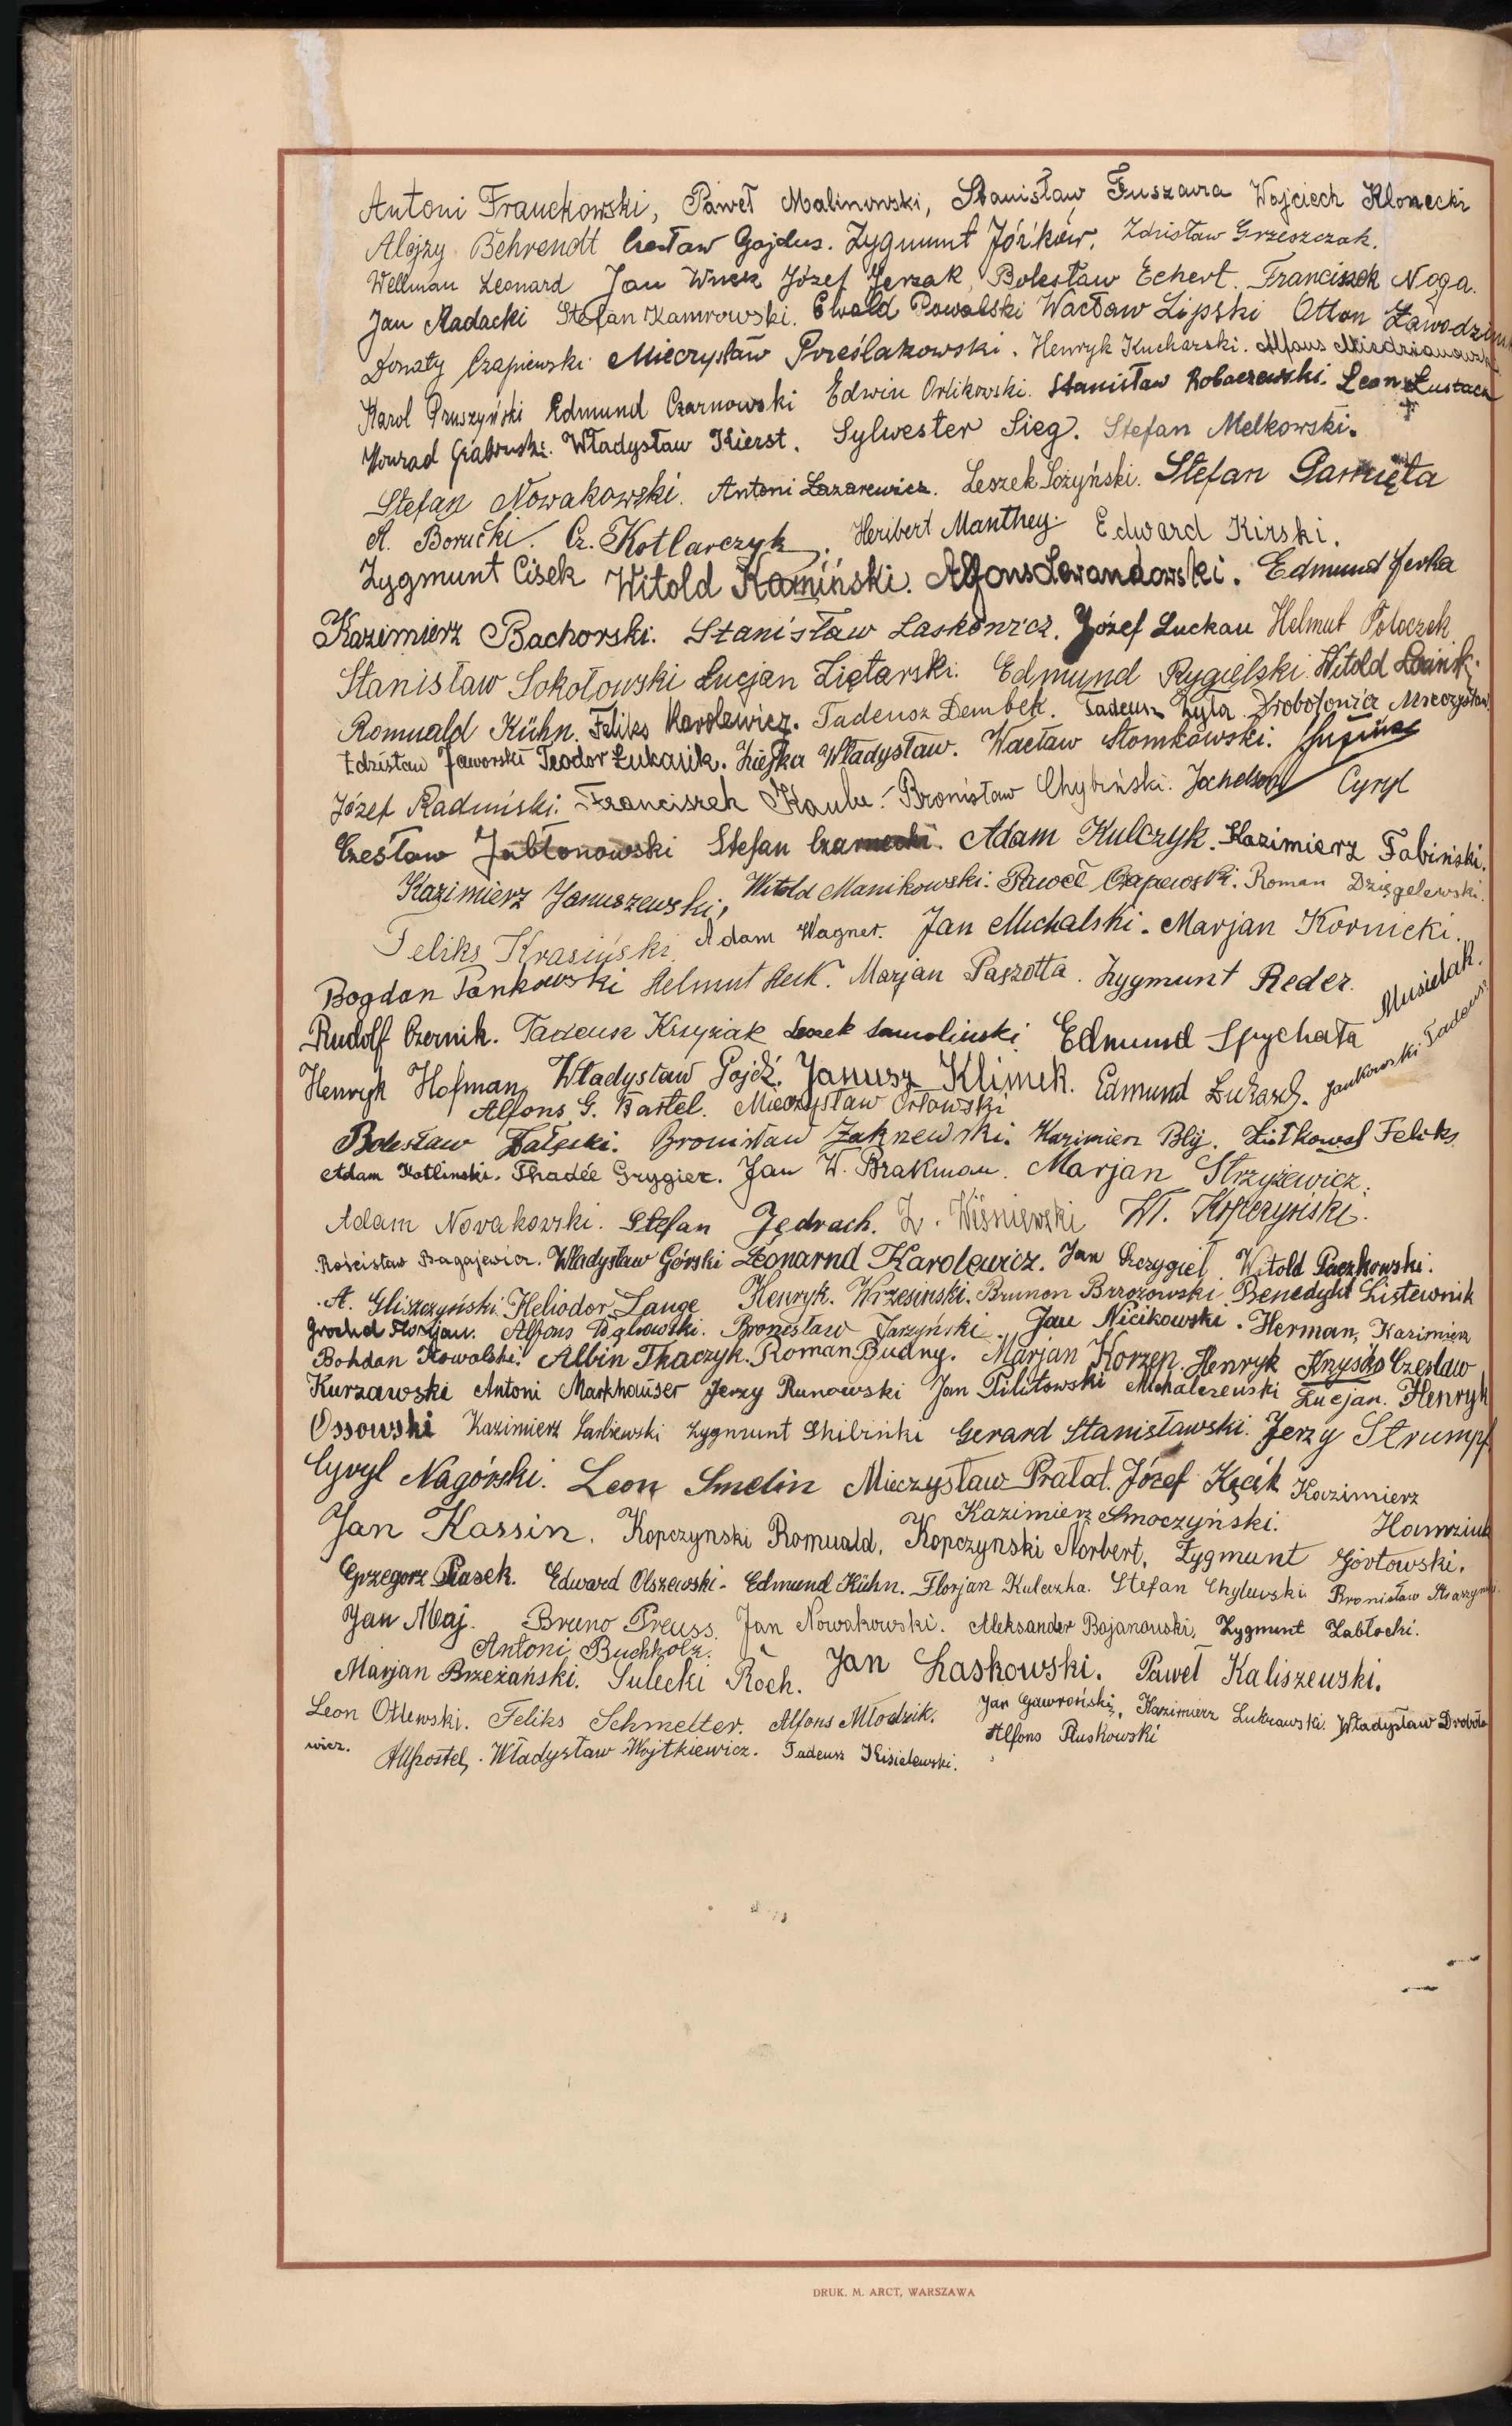 Antoni Franckowski, Paweł Malinowski, Stanisław Fuszara Wojciech Klonecki
Alojzy Behrendt Czesław Gajdus. Zygmunt Józków. Zdzisław Grzeszczak.
Wellman Leonard Jan Wnęk Józef Jerzak, Bolesław Echert. Franciszek Noga.
Jan Radacki Stefan Kamrowski. Ewald Powalski Wacław Lipski Otton
Donaty Czapiewski. Mieczysław Prześlakowski. Henryk Kucharski. Alfons
Karol Pruszyński Edmund Czarnowski Edwin Orlikowski. Stanisław Robaczewski. Leon
Konrad Grabowski. Władysław Kierst. Sylwester Sieg. Stefan Melkowski.
Stefan Nowakowski. Antoni Łazarewicz. Leszek Łożyński. Stefan Pamięta
A. Borucki. Cz. Kotlarczyk. Heribert Manthey. Edward Kirski.
Zygmunt Cisek Witold Kamiński. Alfons Lewandowski. Edmund Jerka
Kazimierz Bachorski. Stanisław Laskowicz. Józef Luckau Helmut Poloczek
Stanisław Sokołowski Lucjan Ziętarski. Edmund Rygielski. Witold
Romuald Kühn. Feliks Karolewicz. Tadeusz Dembek. Tadeusz Zyta Drobotowicz Mieczysław
Zdzisław Jaworski Teodor Łukasik. Ziejka Władysław. Wacław Słomkowski.
Józef Radmiński. Franciszek Kaube. Bronisław Chybiński. Jachelson Cyryl
Czesław Jabłonowski Stefan Czarnecki. Adam Kulczyk. Kazimierz Fabiński.
Kazimierz Januszewski, Witold Manikowski. Paweł Czapewski. Roman Dzięgelewski.
Feliks Krasiński. Adam Wagner. Jan Michalski. Marjan Kornicki.
Bogdan Pankowski Helmut Heck. Marjan Paszotta. Zygmunt Reder. Musielak.
Rudolf Czernik. Tadeusz Krzyżak Leszek Samoliński. Edmund Spychała
Henryk Hofman, Władysław Pojdź. Janusz Klimek. Edmund Jankowski Tadeusz
Alfons G. Bartel. Mieczysław Orłowski
Bolesław Załęski. Bronisław Zakrzewski. Kazimierz Blij. Ziółkowski Feliks.
Adam Kotliński. Thadée Grygier. Jan W. Brakman. Marjan Strzyżewicz.
Adam Nowakowski. Stefan Jędrach. Z. Wiśniewski Wł. Kopczyński.
Rościsław Bagajewicz. Władysław Górski Leonarnd Karolewicz. Jan Szczygieł. Witold Paczkowski.
A. Gliszczyński. Heliodor Lange Henryk. Wrzesinski. Brunon Brzozowski Benedykt Listewnik
Grochol Florjan. Alfons Bronisław Jarzyński. Jan Nicikowski. Herman, Kazimierz
Bohdan Kowalski. Albin Tkaczyk. Roman Budny. Marjan Korzen. Henryk Krzysko Czesław
Kurzawski Antoni Markhauser Jerzy Runowski Jan Piłitowski Michalczewski Lucjan. Henryk
Ossowski Kazimierz Sarbiewski Zygmunt Skibinki Gerard Stanisławski. Jerzy Strumpf
Cyryl Nagórski. Leon Smelin Mieczysław Prałat. Józef Kęcik Kazimierz
Jan Kassin. Kopczynski Romuald. Kazimierz Smoczyński. Kopczynski Norbert. Zygmunt Jórtowski.
Grzegorz Piasek. Edward Olszewski. Edmund Kühn. Florjan Kuleczka. Stefan Chylewski Bronisław
Jan Maj. Bruno Preuss. Jan Nowakowski. Aleksander Bojanowski, Zygmunt Zabłocki.
Antoni Buchholz.
Marjan Brzeżański. Sulecki Roch. Jan Laskowski. Paweł Kaliszewski.
Leon Ottewski. Feliks Schmelter. Alfons Młodzik. Jan Gawroński, Kazimierz Lukrawski. Władysław Droboto
wicz. Władysław Wojtkiewicz. Tadeusz Kisielewski. Alfons Pluskowski
DRUK. M. ARCT, WARSZAWA